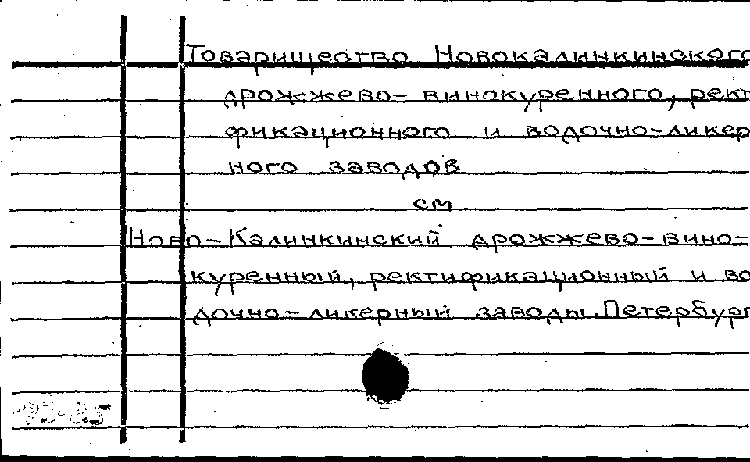 Товарищество Новокалинкинского
дрожжево-винокуренного, рект
фикационного и водочно-ликер
ного заводов
см
Ново-Калинкинский дрожжево-вино-
куренный, ректификационный и во
дочно-ликерный заводы. Петербург